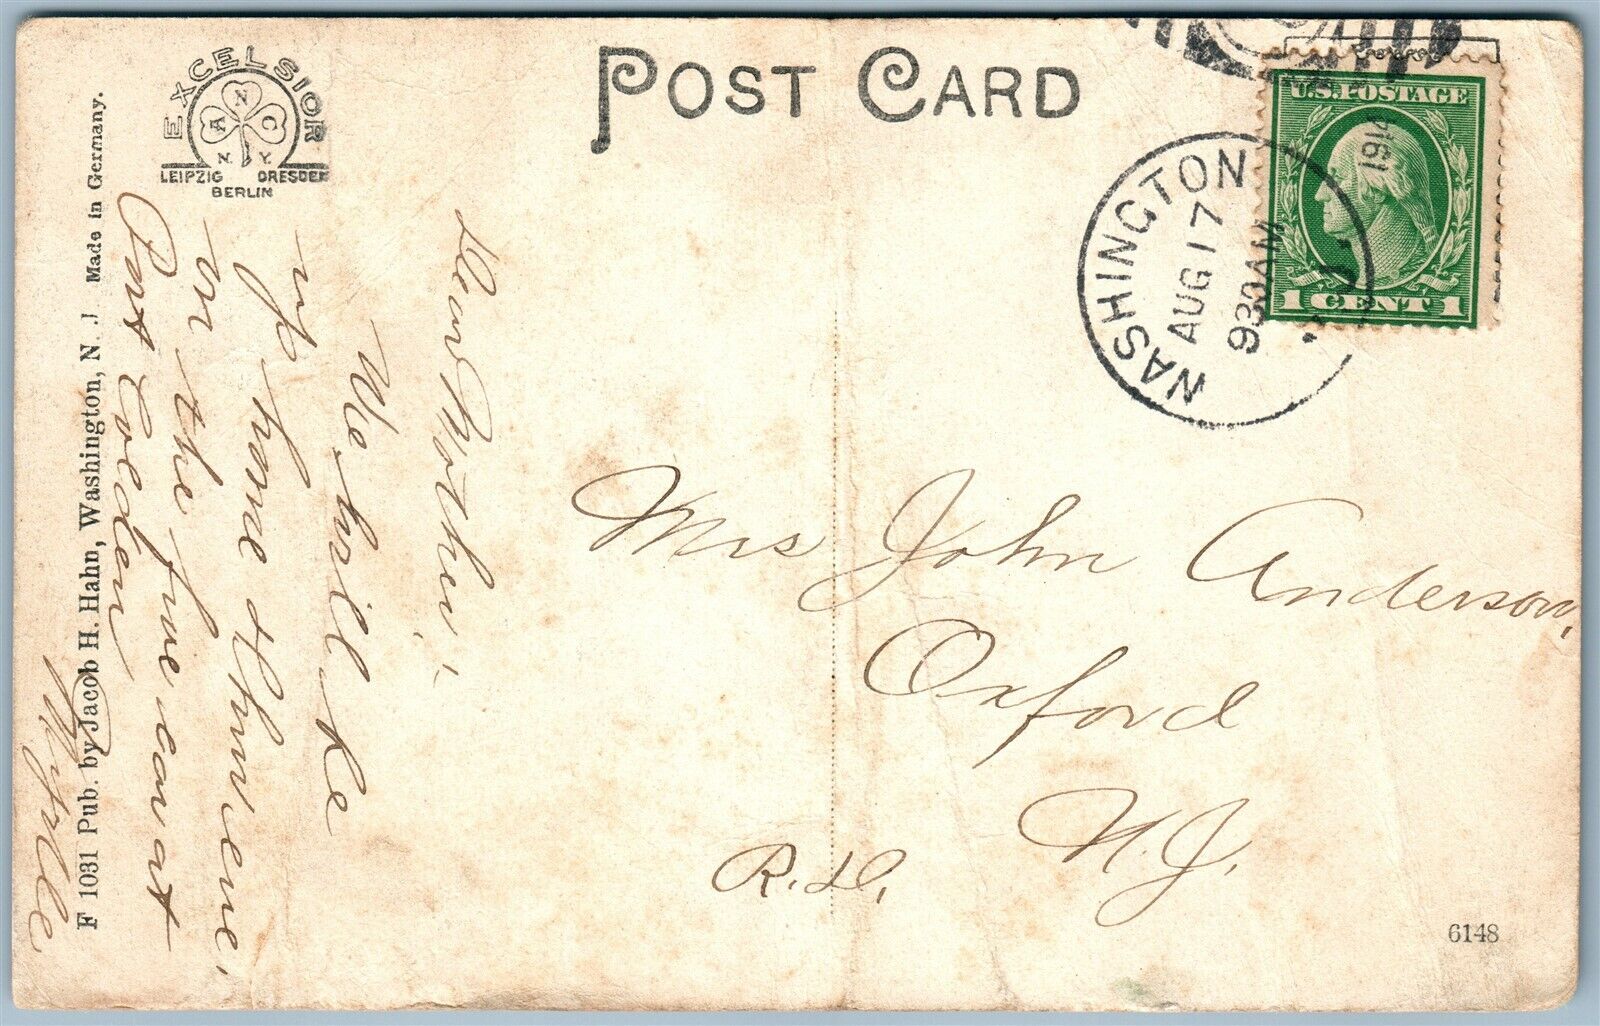 POST CARD
EXCELSIOR
A N C
N. Y.
LEIPZIG DRESDEN
BERLIN
F 1031 Pub. by Jacob H. Hahn, Washington, N. J. Made in Germany.
U.S. POSTAGE
1 CENT 1
WASHINGTON
AUG 17
930AM
1914
N.J.
Dear Mother:
We will be
up home Thur eve.
on the five car at
Port Colden
Myrtle
Mrs John Anderson,
Oxford
N.J.
R.D.
6148